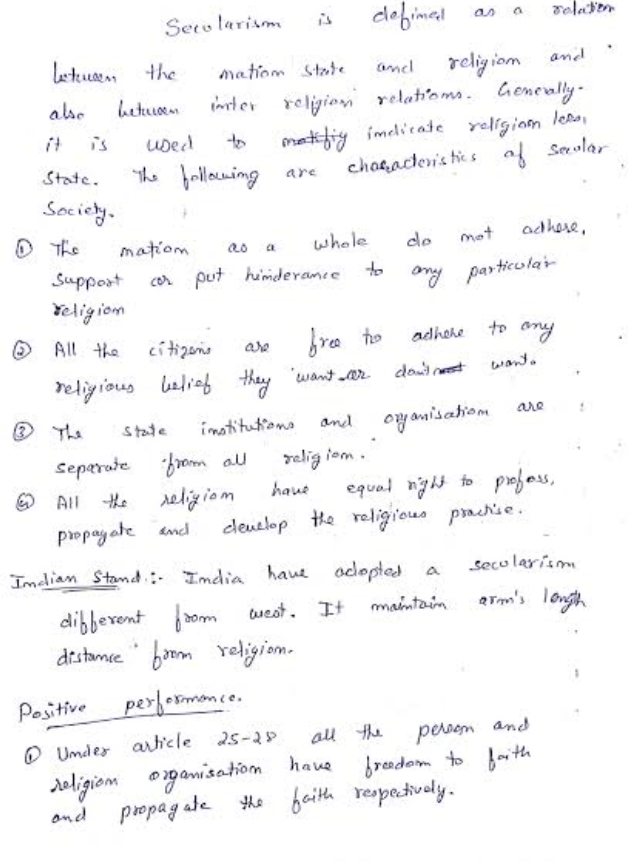 Secularism is defined as a relation
between the nation state and religion and
also between inter religion relations. Generally
it is used to indicate religion less
state. The following are characteristics of secular
Society.
① The nation as a whole do not adhere,
support or put hinderance to any particular
religion
② All the citizens are free to adhere to any
religious belief they want or don't want.
③ The state institutions and organisation are
separate from all religion.
④ All the religion have equal right to profess,
propagate and develop the religious practise.
Indian Stand :- India have adopted a secularism
different from west. It maintain arm's length
distance from religion.
Positive performance.
① Under article 25-28 all the person and
religion organisation have freedom to faith
and propagate the faith respectively.